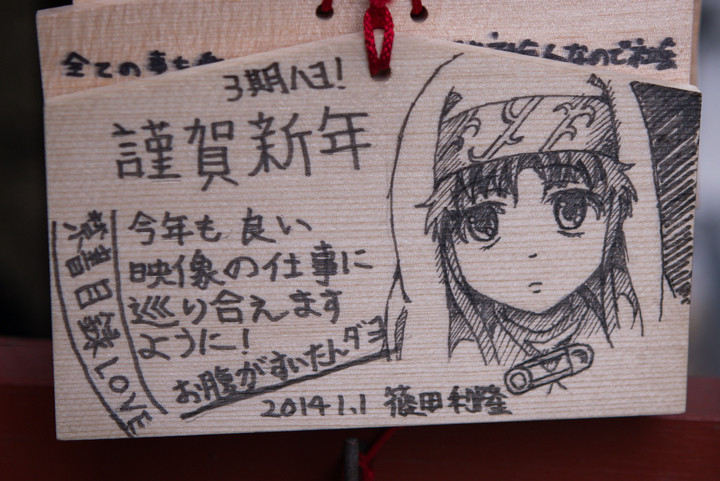 全ての事も
3期ハヨ!
謹賀新年
今年も良い
映像の仕事に
巡り合えます
ように!
お腹がすいたんダヨ
禁書目録LOVE
2014.1.1 篠田利隆